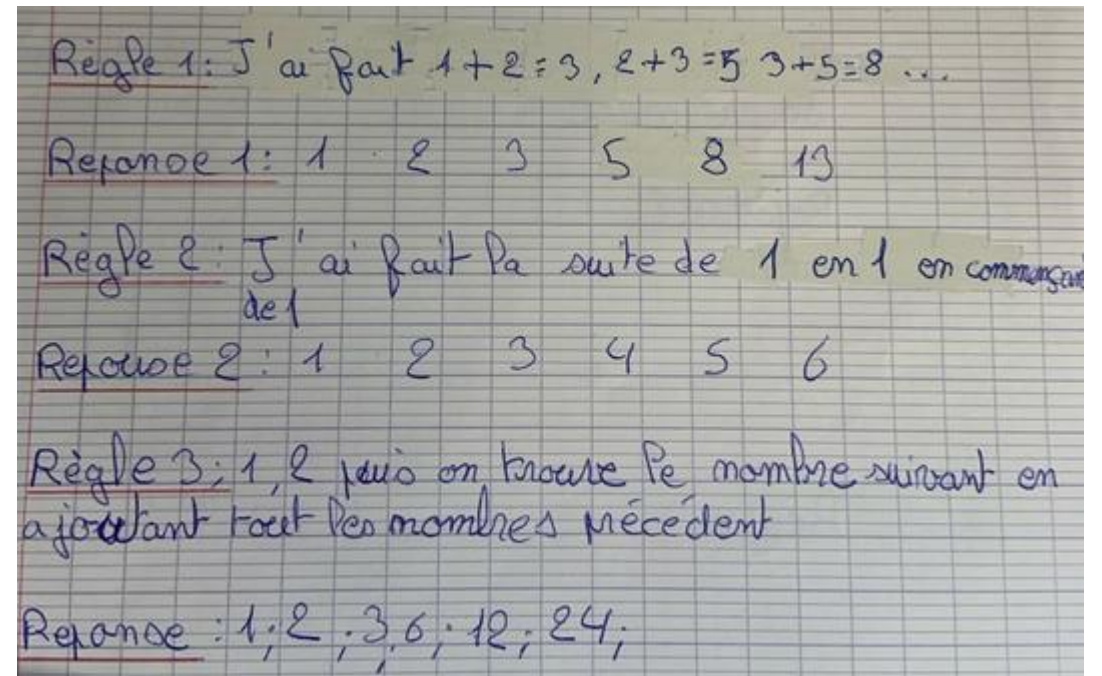 Règle 1: J'ai fait 1+2=3, 2+3=5 3+5=8 ...
Reponse 1: 1 2 3 5 8 13
Règle 2: J'ai fait la suite de 1 en 1 en commençant
de 1
Reponse 2: 1 2 3 4 5 6
Règle 3: 1, 2 puis on trouve le nombre suivant en
ajoutant tout les nombres précédent
Reponse : 1; 2; 3; 6; 12; 24;